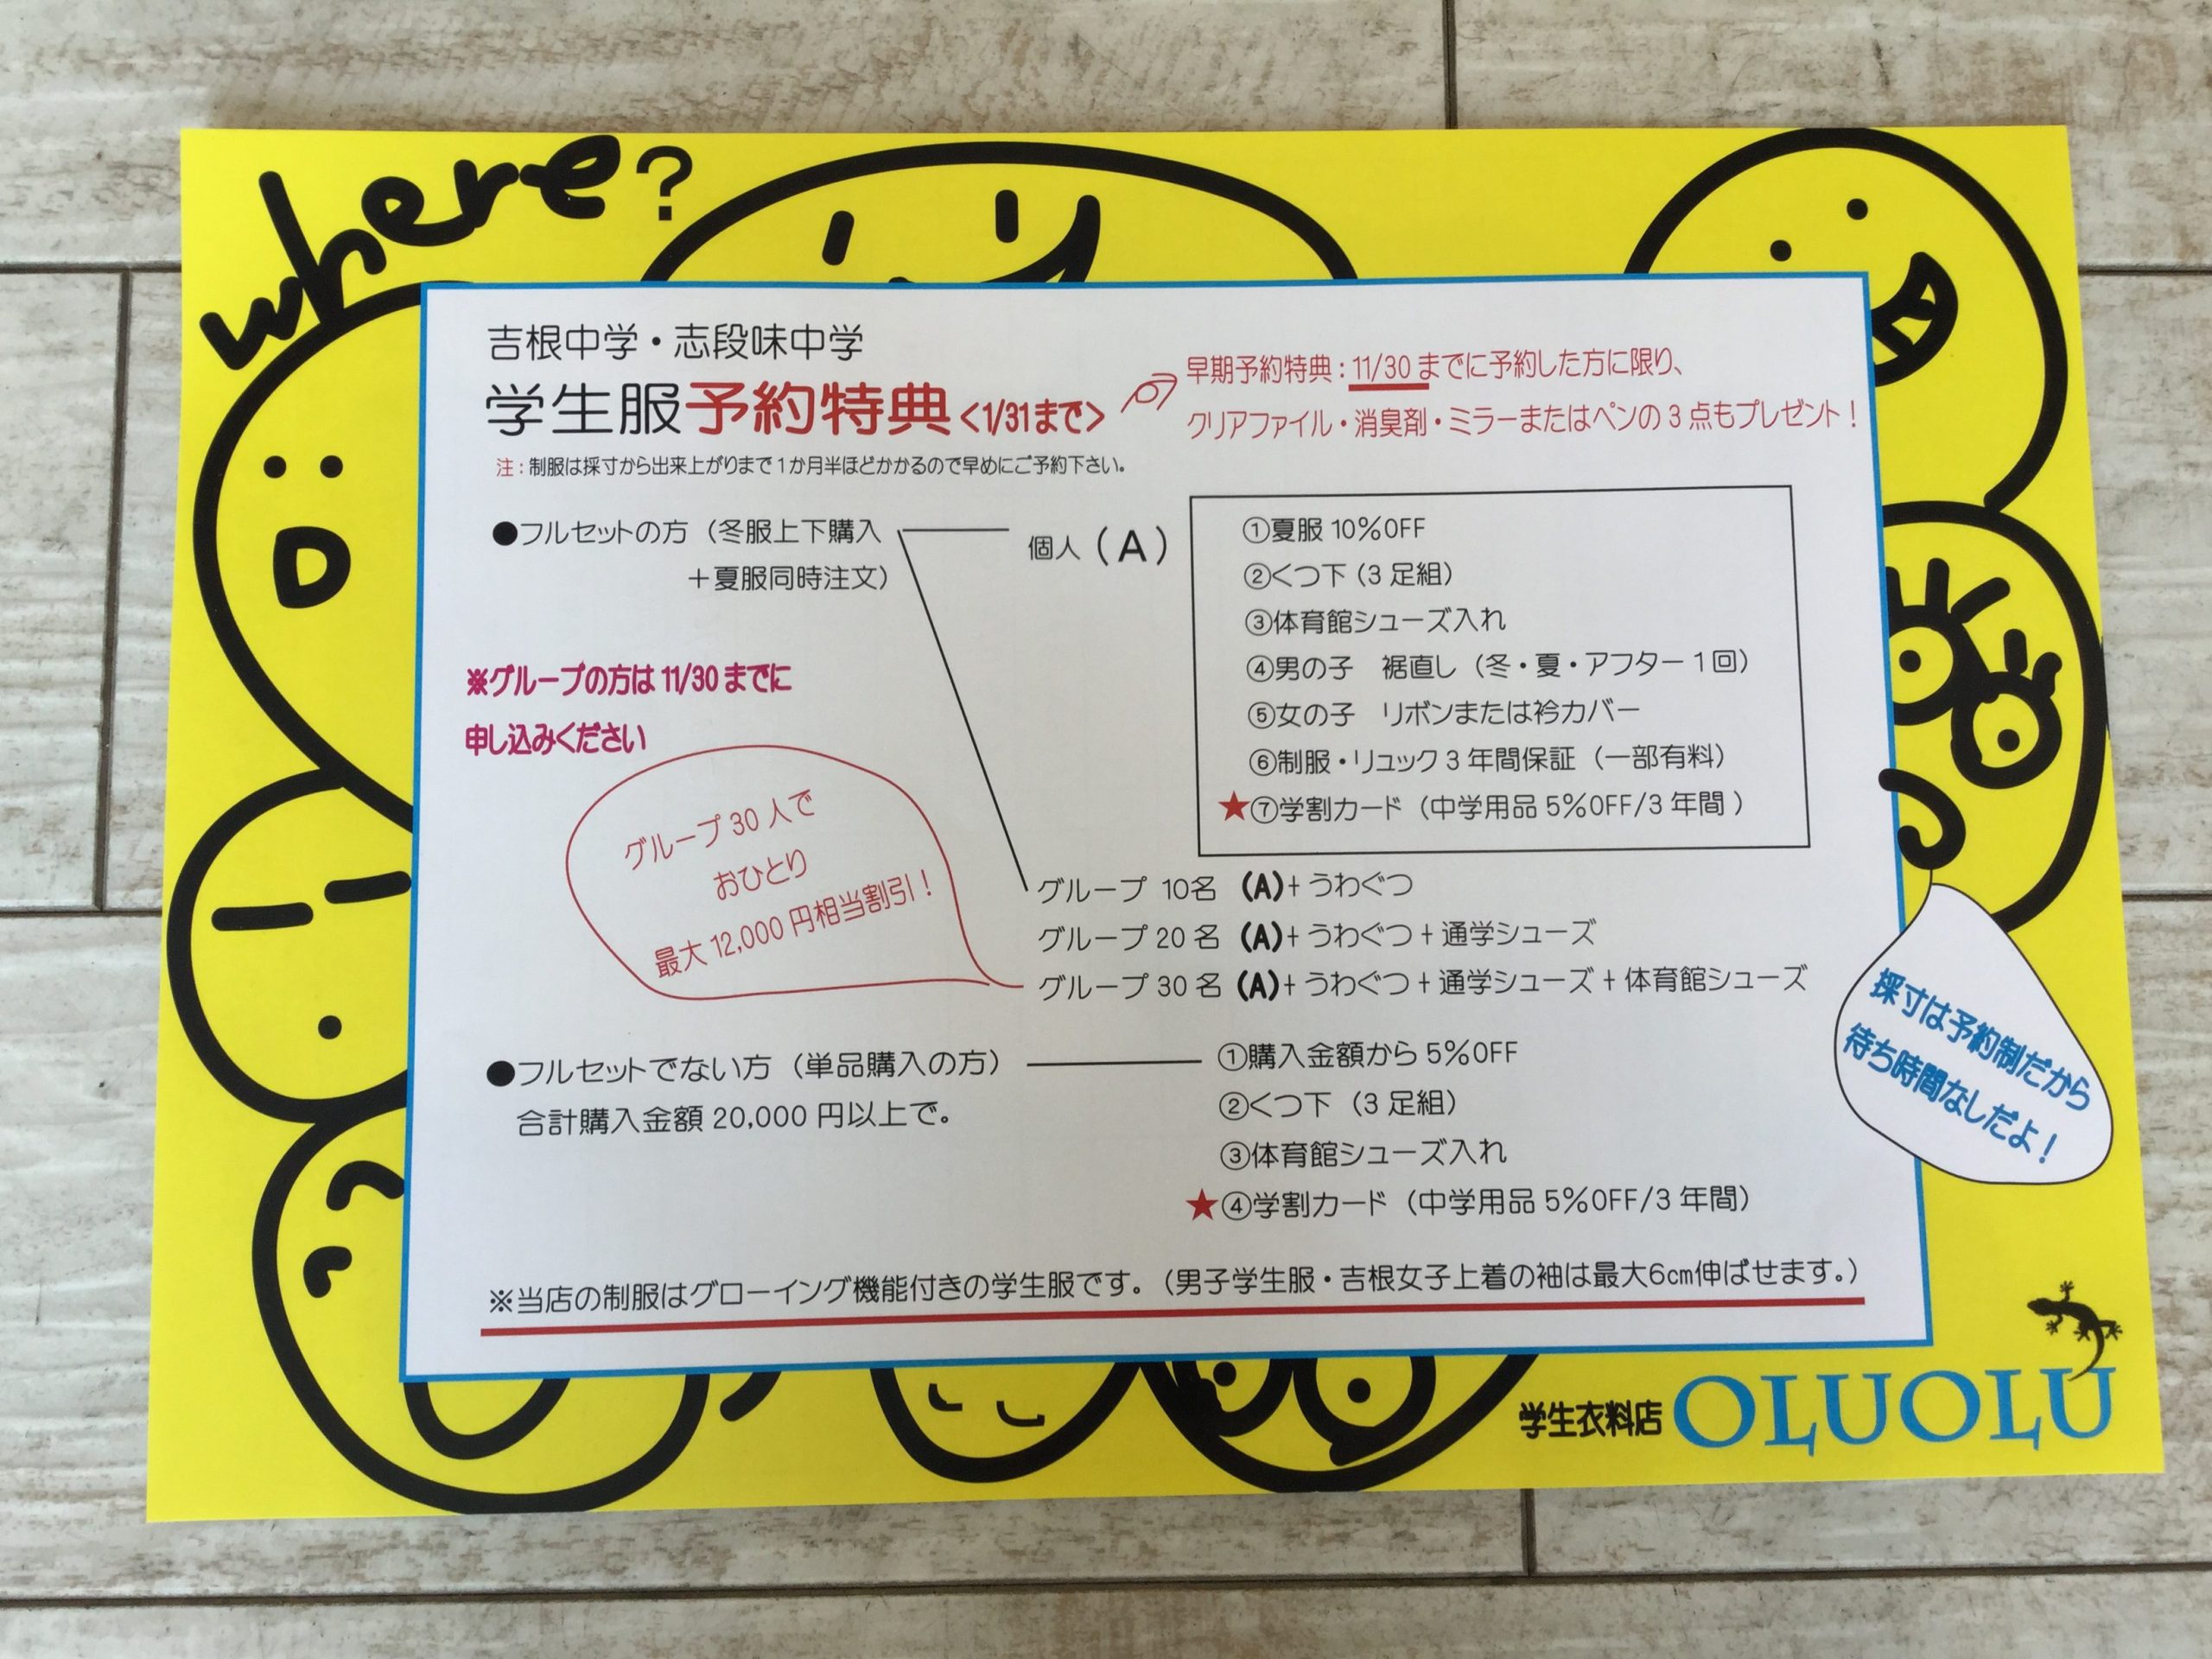 where?
吉根中学・志段味中学
学生服予約特典<1/31まで>
早期予約特典:11/30までに予約した方に限り、
クリアファイル・消臭剤・ミラーまたはペンの3点もプレゼント!
注:制服は採寸から出来上がりまで1か月半ほどかかるので早めにご予約下さい。
●フルセットの方(冬服上下購入
+夏服同時注文)
個人(A)
①夏服10%OFF
②くつ下(3足組)
③体育館シューズ入れ
④男の子 裾直し(冬・夏・アフター1回)
⑤女の子 リボンまたは衿カバー
⑥制服・リュック3年間保証(一部有料)
★⑦学割カード(中学用品5%OFF/3年間)
※グループの方は11/30までに
申し込みください
グループ30人で
おひとり
最大12,000円相当割引!
グループ 10名 (A)+うわぐつ
グループ20名 (A)+うわぐつ+通学シューズ
グループ30名 (A)+うわぐつ+通学シューズ+体育館シューズ
採寸は予約制だから
待ち時間なしだよ!
●フルセットでない方(単品購入の方)
合計購入金額20,000円以上で。
①購入金額から5%OFF
②くつ下(3足組)
③体育館シューズ入れ
★④学割カード(中学用品5%OFF/3年間)
※当店の制服はグローイング機能付きの学生服です。(男子学生服・吉根女子上着の袖は最大6cm伸ばせます。)
学生衣料店 OLUOLU